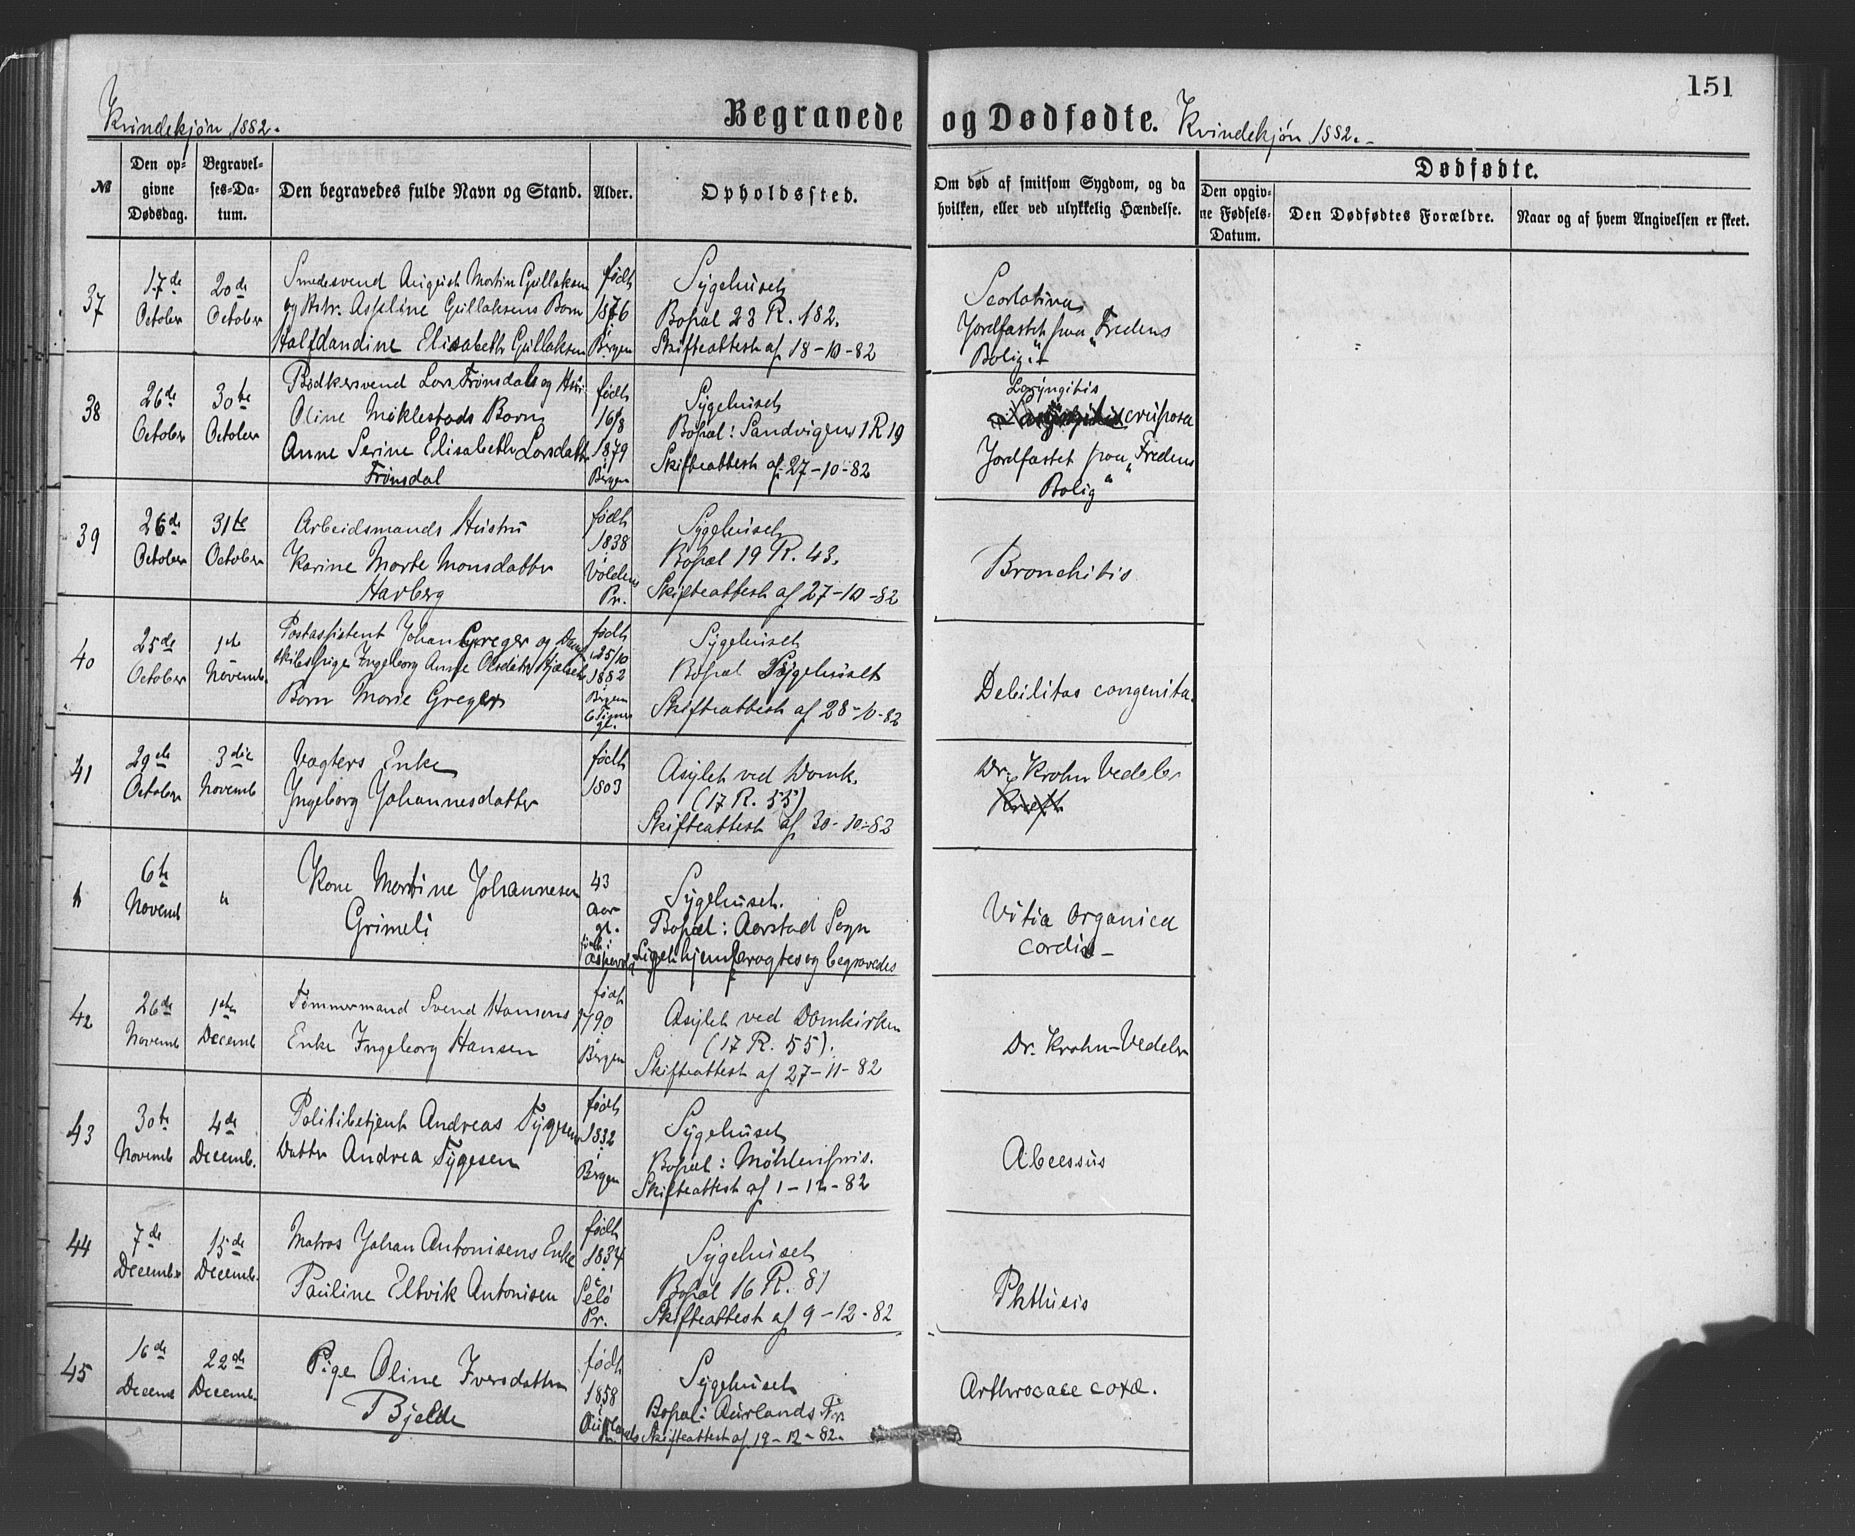 151
Kvindekjøn 1882.
Begravede og Dødfødte.
Kvindekjøn 1882.
№
Den opgivne Dødsdag.
Begravelses-Datum.
Den begravedes fulde Navn og Stand.
Alder.
Opholdssted.
Om død af smitsom Sygdom, og da hvilken, eller ved ulykkelig Hændelse.
Dødfødte.
Den opgivne Fødsels-Datum.
Den Dødfødtes Forældre.
Naar og af hvem Angivelsen er skeet.
37
17de October
20de October
Smedesvend August Martin Gullaksen
og Hstr. Asseline Gullaksens Barn
Halfdandine Elisabeth Gullaksen
født 1876 i Bergen
Sygehuset
Bopæl 23 R. 182.
Skifteattest af 18-10-82
Scarlatina
Jordfæstet paa "Fredens
Bolig."
38
26de October
30te October
Bødkersvend Lars Frønsdals og Hus.
Oline Miklestads Barn
Anne Serine Elisabeth Larsdatter
Frønsdal
født 16/8 1879 i Bergen
Sygehuset
Bopæl: Sandvigens 1 R 19
Skifteattest af 27-10-82
Laryngitis
cruposa
Jordfæstet paa "Fredens
Bolig"
39
26de October
31te October
Arbeidsmands Hustru
Karine Marte Monsdatter
Havberg
født 1838 i Voldens Pr.
Sygehuset
Bopæl 19 R. 43.
Skifteattest af 27-10-82
Bronchitis
40
25de October
1ste Novemb.
Postassistent Johan Greger og
Ingeborg Anne
Barn Marie Greger
født 25/10 1882 i Bergen 6 Timer gl.
Sygehuset
Bopæl Sygehuset
Skifteattest af 28-10-82
Debilitas congenita.
41
29de October
3die Novemb
Vægters Enke
Ingeborg Johannesdatter
født 1803
Asylet ved Domk.
(17 R. 55)
Skifteattest af 30-10-82
Dr. Krohn Vedeler
6te Novemb
"
Kone Martine Johannesen
Grimeli
43 Aar gl. født i Askevold
Sygehuset.
Bopæl: Aarstad Sogn
Liget hjemfragtes og begravedes
Vitia organica
cordis
42
26de Novemb
1ste Decemb
Tømmermand Svend Hansens
Enke Ingeborg Hansen
født 1790 i Bergen
Asylet ved Domkirken
(17 R. 55).
Skifteattest af 27-11-82
Dr. Krohn-Vedeler
43
30te Novemb
4de Decemb.
Politibetjent Andreas Tygesens
Datter Andrea Tygesen
født 1832 i Bergen
Sygehuset
Bopæl: Møhlenpris.
Skifteattest af 1-12-82
Abcessus
44
7de Decemb
15de Decemb.
Matros Johan Antonisens Enke
Pauline Eltvik Antonisen
født 1834 i Selø Pr.
Sygehuset
Bopæl 16 R. 81
Skifteattest af 9-12-82
Phthisis
45
16de Decemb
22de Decemb.
Pige Oline Iversdatter
Bjelde
født 1858 i Aurlands
Sygehuset
Bopæl: Aurlands Pr.
Skifteattest af 19-12-82.
Arthrocace coxæ.